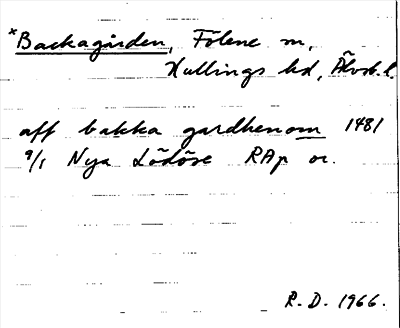 *Backagården, Fölene sn,
Kullings hd, Älvsb. l.
aff bakka gardhenom 1481
9/1 Nya Lödöse RAp or.
R. D. 1966.